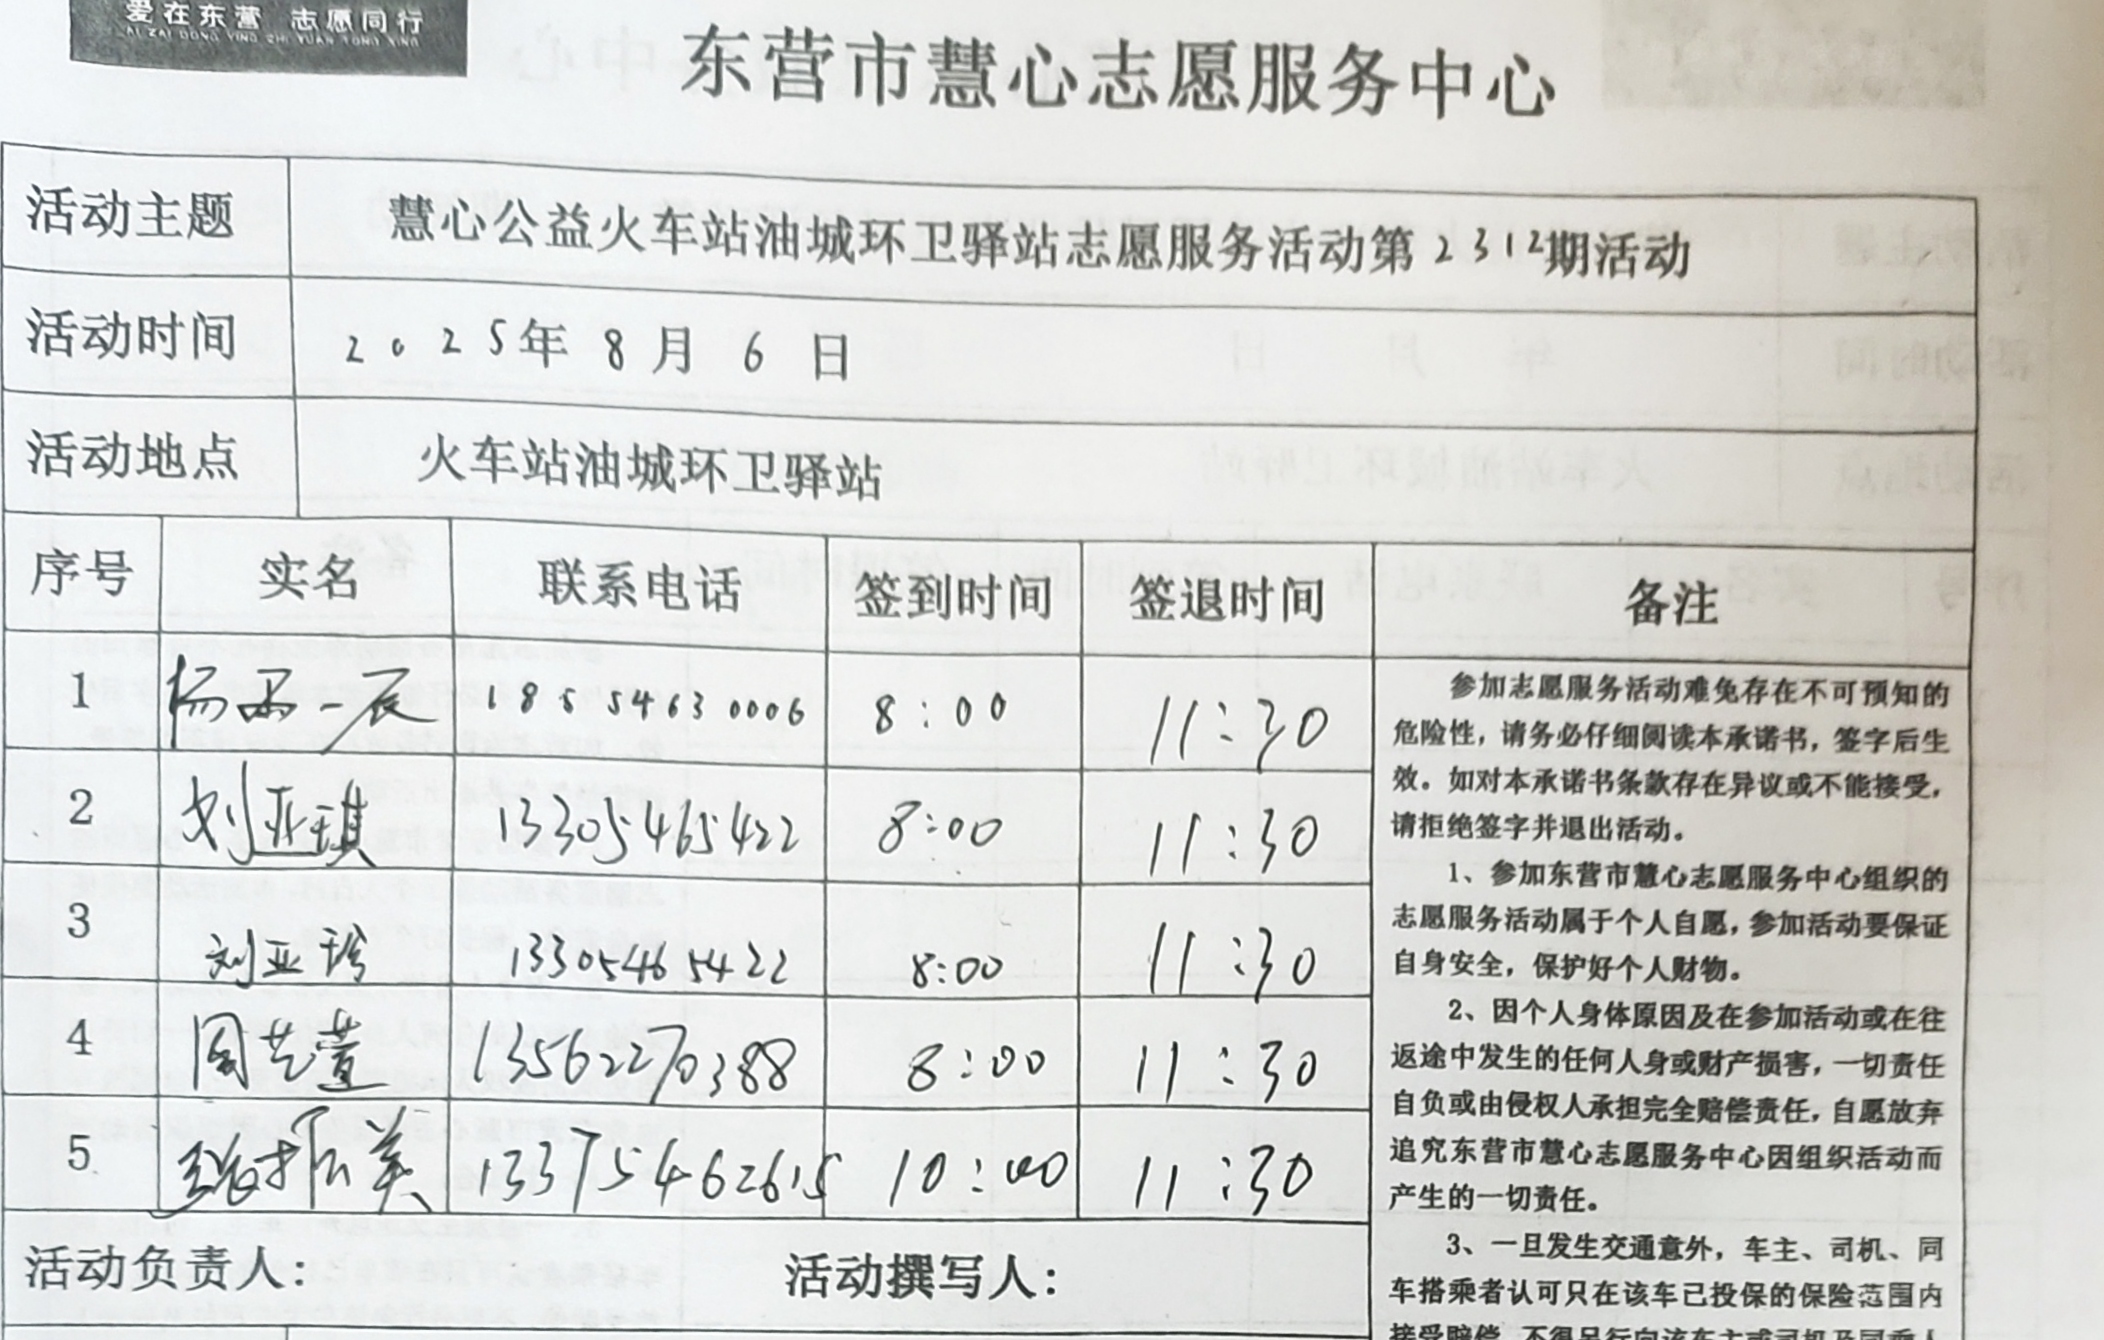 爱在东营 志愿同行
AI ZAI DONG YING ZHI YUAN TONG XING
东营市慧心志愿服务中心
活动主题 慧心公益火车站油城环卫驿站志愿服务活动第2312期活动
活动时间 2025年8月6日
活动地点 火车站油城环卫驿站
序号 实名 联系电话 签到时间 签退时间 备注
1 18554630006 8:00 11:30
2 刘亚琪 13305465422 8:00 11:30
3 刘亚玲 13305465422 8:00 11:30
4 周艺萱 13562270388 8:00 11:30
5 13375462615 10:00 11:30
参加志愿服务活动难免存在不可预知的
危险性，请务必仔细阅读本承诺书，签字后生
效。如对本承诺书条款存在异议或不能接受，
请拒绝签字并退出活动。
1、参加东营市慧心志愿服务中心组织的
志愿服务活动属于个人自愿，参加活动要保证
自身安全，保护好个人财物。
2、因个人身体原因及在参加活动或在往
返途中发生的任何人身或财产损害，一切责任
自负或由侵权人承担完全赔偿责任，自愿放弃
追究东营市慧心志愿服务中心因组织活动而
产生的一切责任。
3、一旦发生交通意外，车主、司机、同
车搭乘者认可只在该车已投保的保险范围内
接受赔偿，不得另行向该车主或司机及同乘人
活动负责人： 活动撰写人：